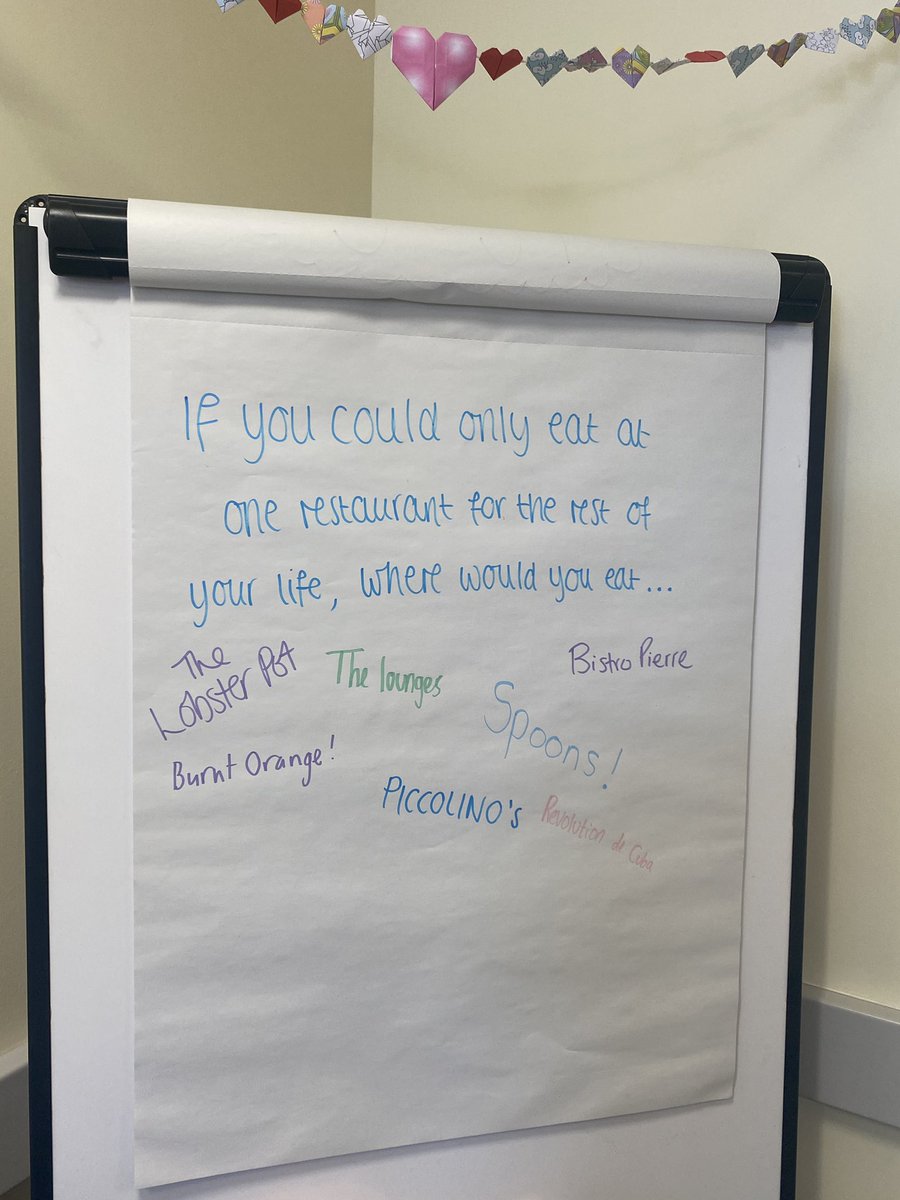 If you could only eat at
one restaurant for the rest of
your life, where would you eat...
The
Lobster Pot
The lounges
Bistro Pierre
Spoons!
Burnt Orange!
PICCOLINO's
Revolution de Cuba